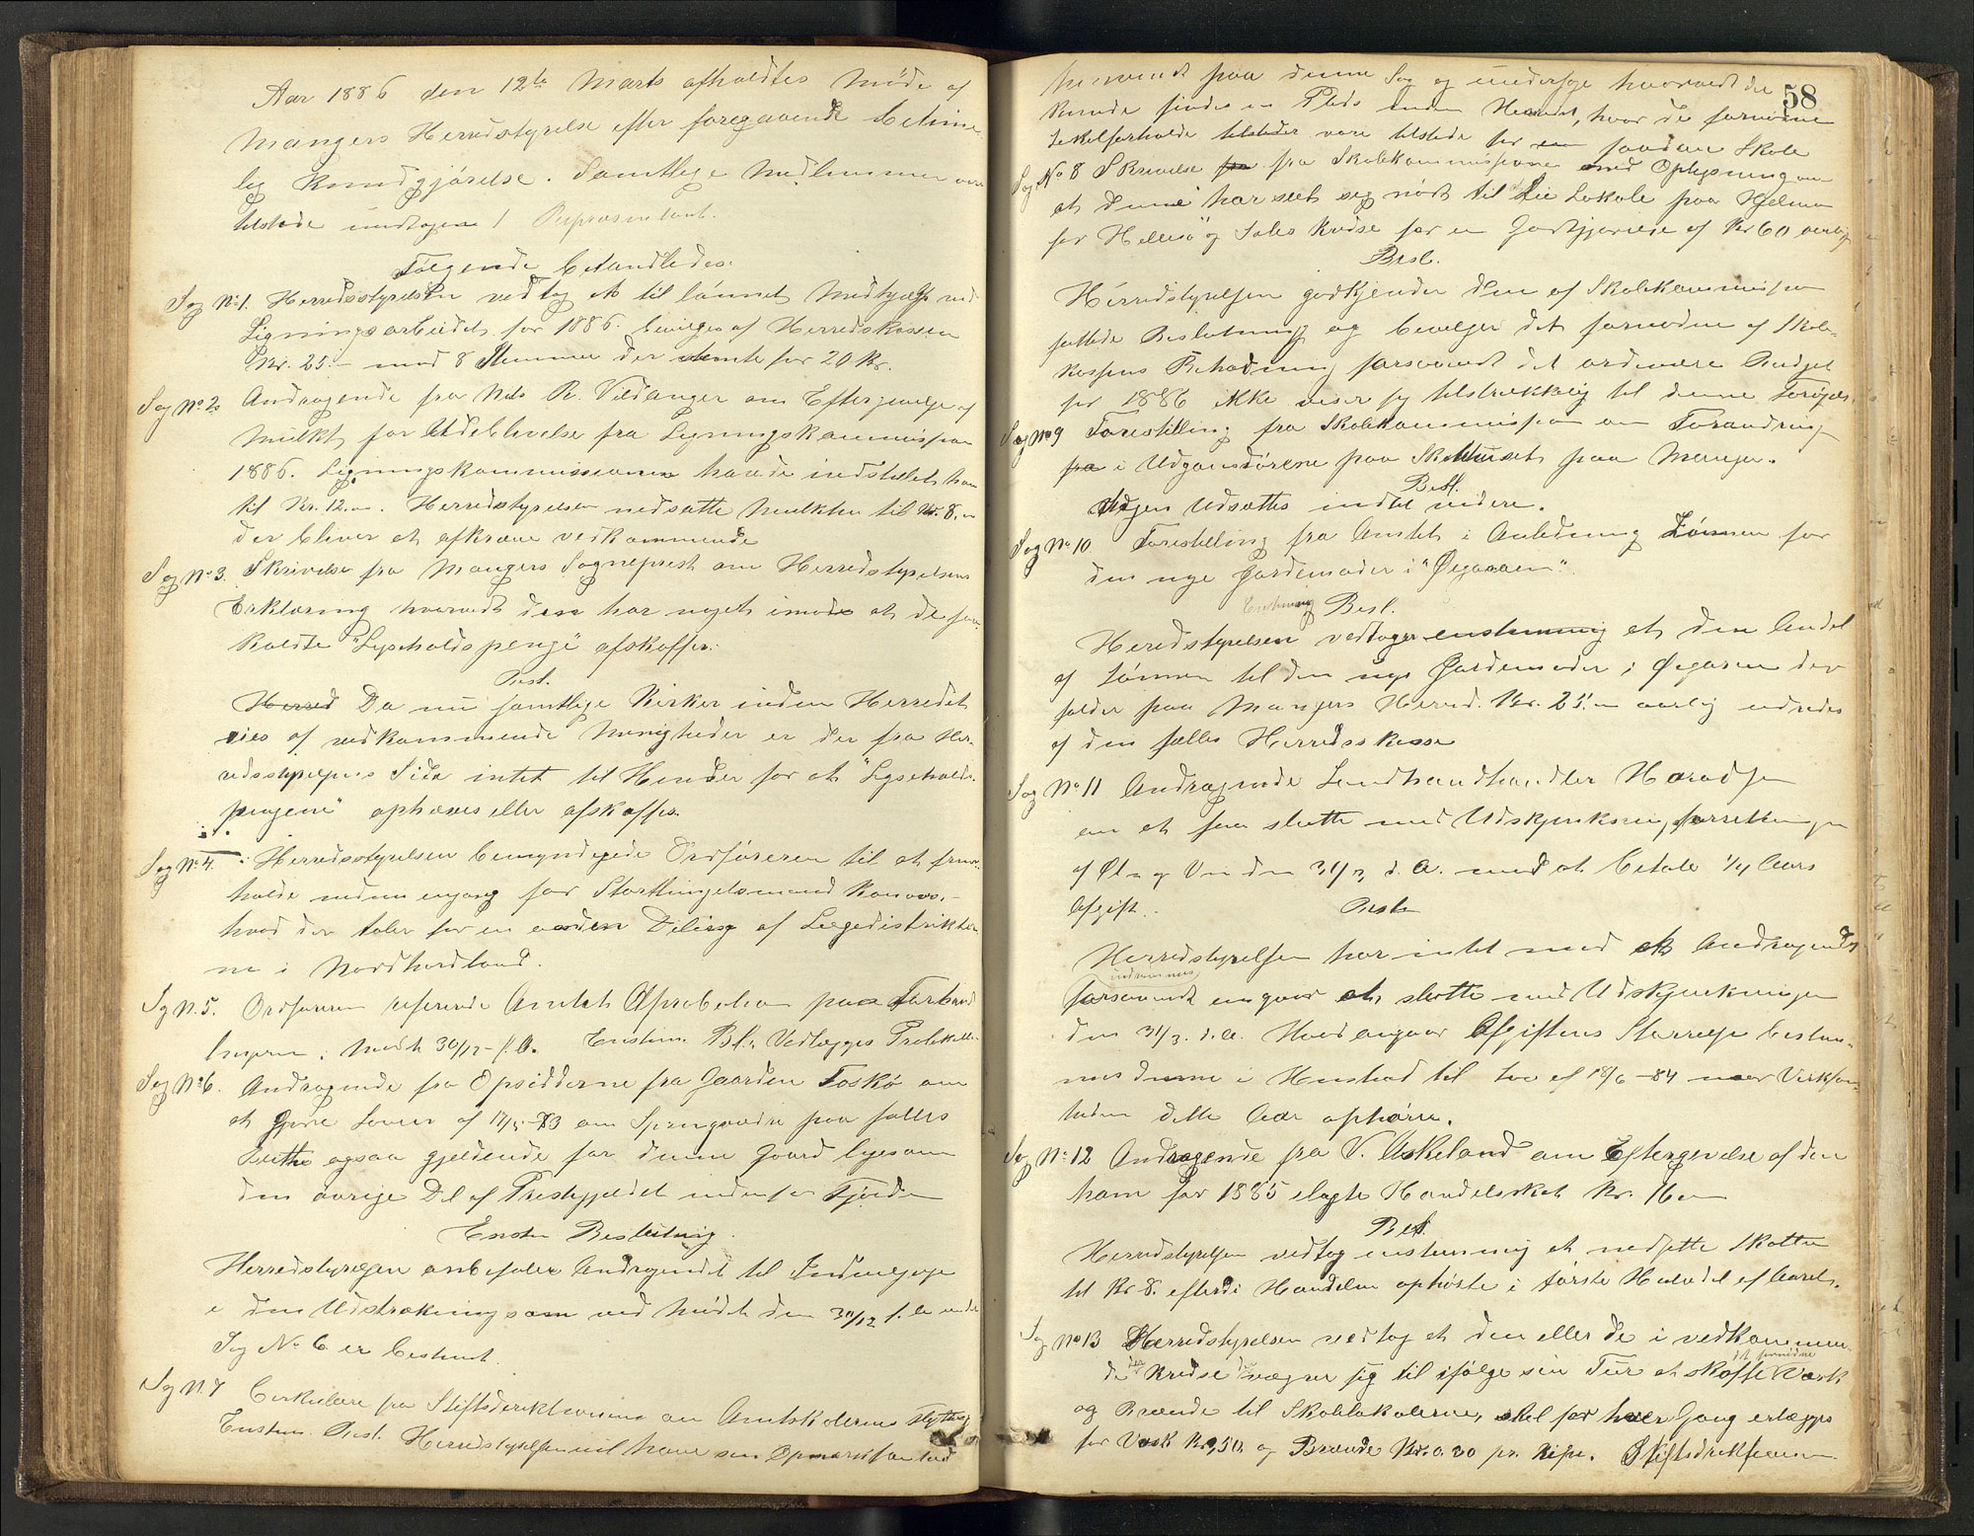 Aar 1886 den 12te Marts afholdtes Møde af
Mangers Herredstyrelse efter foregaaende betime
lig Kundgjørelse. Samtlige Medlemmer var
tilstede undtagen 1 Repræsentant.
Følgende behandledes.
Sag No 1. Herredsstyrelsen vedtog at til lønnet Medhjælp ved
Ligningsarbeidet for 1886. bevilges af Herredskassen
Kr. 25.- med 8 Stemmer der stemte for 20 Kr.
Sag No 2. Andragende fra Nils R. Vildanger om Eftergivelse af
Mulkt for Udeblivelse fra Ligningskommission
1886. Ligningskommissionen havde indstillet ham
til Kr. 12.. Herredstyrelsen nedsatte Mulkten til Kr. 8.
der bliver at afkræve vedkommende
Sag No 3. Skrivelse fra Mangers Sogneprest om Herredstyrelsens
Erklæring hvorvidt den har noget imod at de saa
kaldte "Lyseholdspenge" afskaffes.
Besl.
Herred Da nu samtlige Kirker inden Herredet
eies af vedkommende Menigheder er der fra Her-
redsstyrelsens Side intet til Hinder for at "Lyseholds-
pengene" ophæves eller afskaffes.
Sag No 4. Herredsstyrelsen bemyndigede Ordføreren til at frem-
holde endnu engang for Storthingsmand
hvad der taler for en anden Deling af Lægedistrikter-
ne i Nordhordland.
Sag N. 5. Ordføreren refererede Amtets Approbation paa
i Møde 30/12 f. A. Enstem. Besl. Vedlægges Protokollen
Sag No 6. Andragende fra Opsidderne fra Gaarden Toskø om
at gjøre Loven af om paa fælles
ogsaa gjældende for denne Gaard ligesom
den øvrige Del af Prestegjeldet indenfor Fjorden
Enstem Beslutning.
Herredstyrelsen anbefaler Andragendet til Indvilgelse
i den Udstrækning som ved Mødet den 30/12 f. A. under
Sag No 6 er bestemt.
Sag N. 7 Cirkulære fra Stiftsdirektionen om Amtskolernes
Enstem. Besl. Herredstyrelsen vil have sin Opmærksomhed
58
henvendt paa denne Sag og undersøge hvorvidt der
kunde findes en Plads inden Herredet, hvor de fornødne
tilstede for en saadan Skole
Sag No 8 Skrivelse fra fra Skolekommissionen med Oplysning om
at denne har seet sig nødt til at leie Lokale paa Hjelmen
for Hellesø og Sales Kredse for en Godtgjørelse af Kr 60 aarlig
Besl.
Herredstyrelsen godkjender den af Skolekommissionen
fattede Beslutning og bevilger det fornødne af Skole-
kassens Beholdning forsaavidt det ordinære Budget
for 1886 ikke viser sig tilstrækkelig til denne Forøgelse
Sag No 9 Forestilling fra Skolekommissionen om Forandring
fra i Udgangsdørene paa Skolehuset paa Manger.
Besl.
Sagen udsættes indtil videre.
Sag No 10. Forestilling fra Amtet i Anledning Lønnen for
den nye Jordemoder i "Øygaren".
Enstemmig Besl.
Heredstyrelsen vedtager enstemmig at den Andel
af Lønnen til den nye Jordemoder i Øygaren der
falder paa Mangers Herred. Kr. 25. aarlig udredes
af den fælles Herredskasse
Sag No 11 Andragende Landhandler Haradsen
om at faa slutte med Udskjænkningsforretningen
af Øl og Vin den 31/3 d. A. med at betale 1/4 Aars
Afgift.
Besl.
Herredstyrelsen har intet mod at Andragendet
indrømmes
forsaavidt angaar at slutte med Udskjænkningen
den 31/3. d. A. Hvad angaar Afgiftens Størrelse bestem-
mes denne i Henhold til Lov af -84 naar Virksom-
heden dette Aar ophører.
Sag No 12 Andragende fra V. Askeland om Eftergivelse af den
ham for 1885 ilagte Handelsskat Kr. 16
Besl.
Herredstyrelsen vedtog enstemmig at nedsætte Skatten
til Kr 8. efterdi Handelen ophørte i første Halvdel af Aaret.
Sag No 13 Herredstyrelsen vedtog at den eller de i vedkommen-
de Kredse der vægrer sig til ifølge sin Tur at skaffe det fornødne Vask
og Brænde til Skolelokalerne, skal for hver Gang erlægges
for Vask Kr 0,50. og Brænde Kr. 0.80 pr. Kipe. Stiftsdirektionen